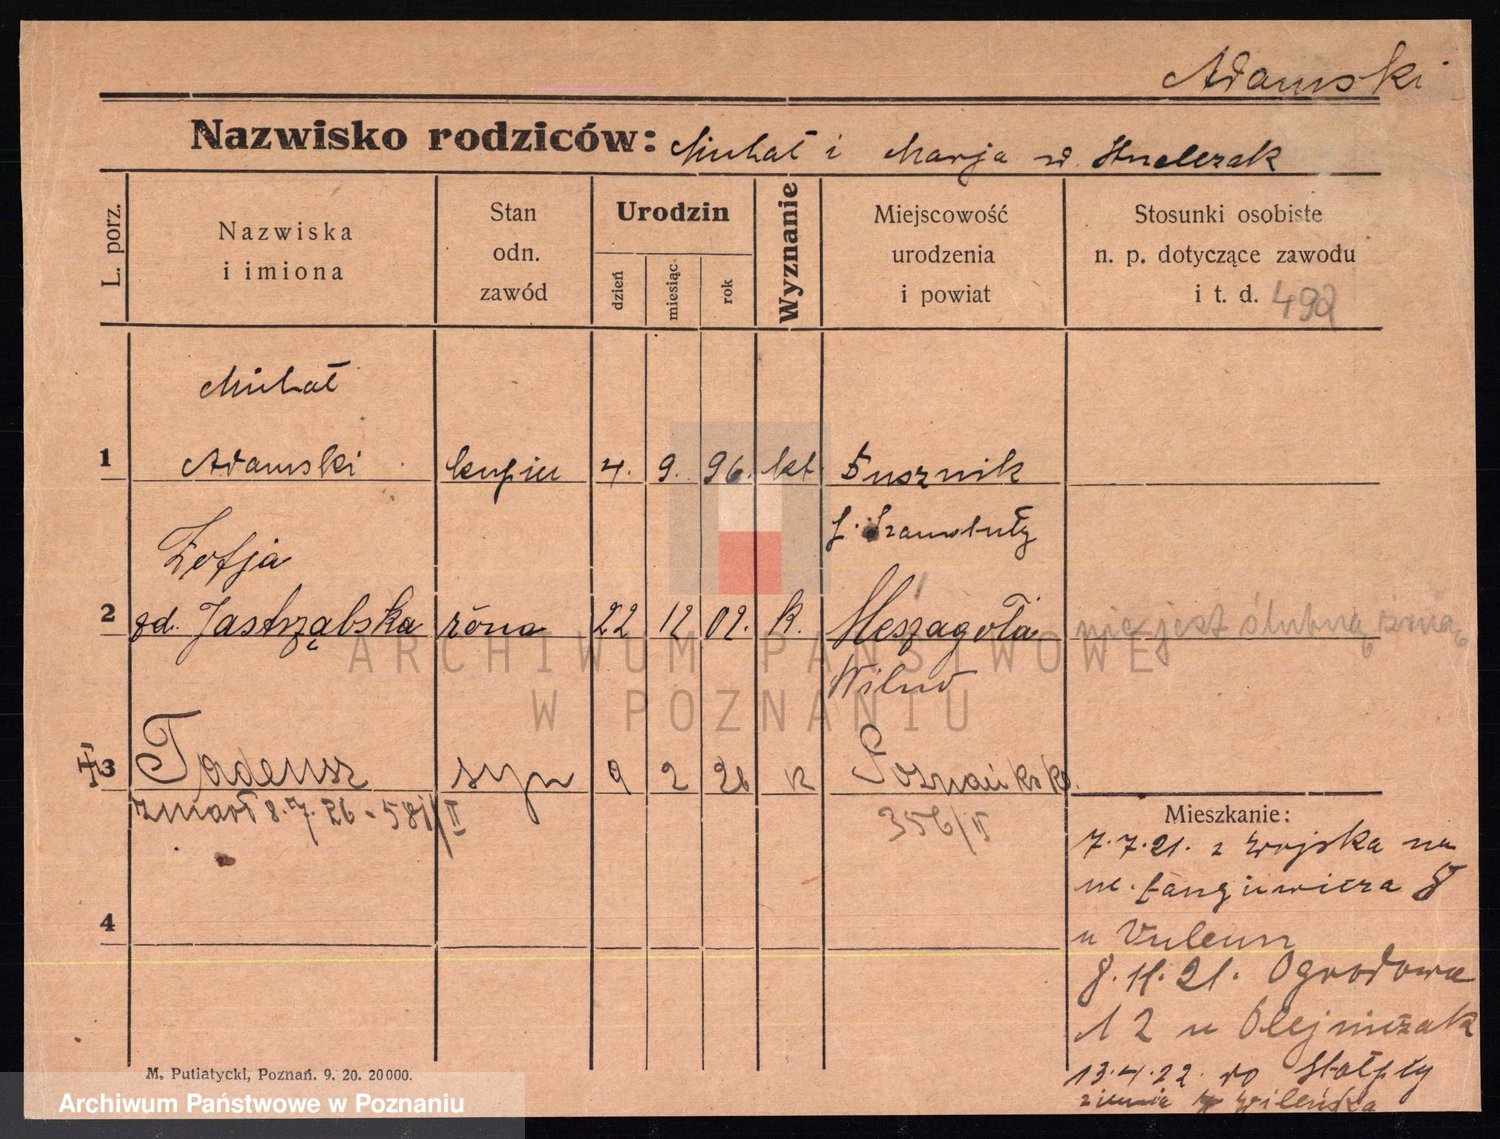 Adamski
Nazwisko rodziców: Michał i Marja
L. porz.
Nazwiska
i imiona
Stan
odn.
zawód
Urodzin
dzień
miesiąc
rok
Wyznanie
Miejscowość
urodzenia
i powiat
Stosunki osobiste
n. p. dotyczące zawodu
i t. d. 492
Michał
1 Adamski kupiec 4. 9. 96. kt Dusznik
Szamotuły
Zofja
2 zd. Jastrząbska żona 22 12 02. k. Meszagoła
nie jest ślubną żoną
Wilno
3 Tadeusz syn 9 2 26 k Poznań
zmarł 8.7.26 - 581/II
356/II
4
Mieszkanie:
7.7.21. z wojska na
ul. Langiewicza 8
u
8.11.21. Ogrodowa
12 u Olejniczak
13.4.22 do Stołpty
ziemia Wileńska
M. Putiatycki, Poznań. 9. 20. 20000.
ARCHIWUM PAŃSTWOWE
W POZNANIU
Archiwum Państwowe w Poznaniu